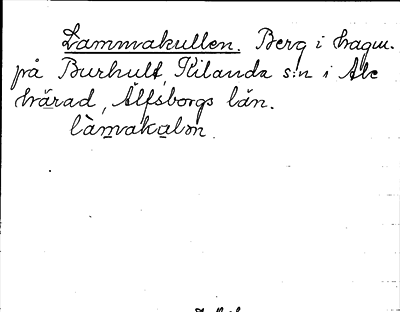 Lammakullen. Berg i hagm.
på Burhult, Kilanda s:n i Ale
härad, Älfsborgs län.
làmakalən.